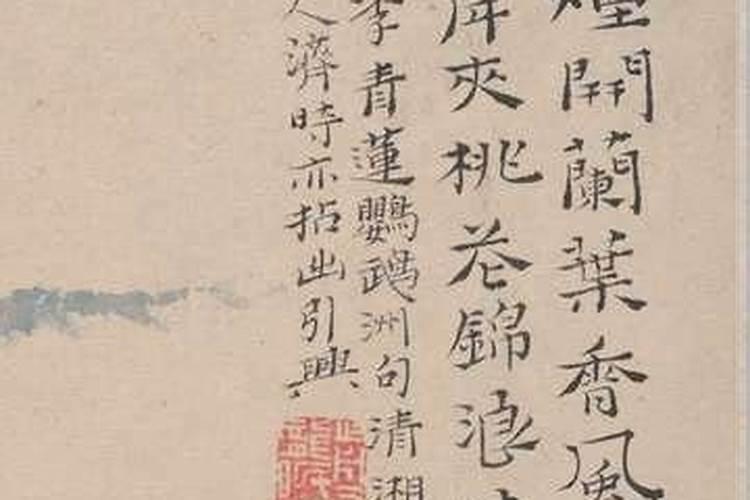 煙開蘭葉香風
岸夾桃花錦浪
李青蓮鸚鵡洲句清湘
人濟時亦拈出引興